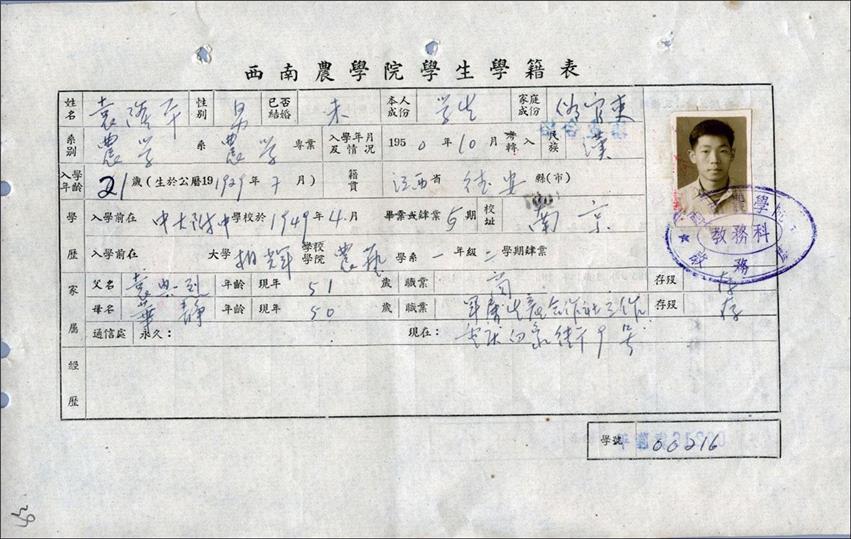 西南農學院學生學籍表
姓名 袁隆平 性別 男 已否結婚 未 本人成份 学生 家庭成份
系別 農学 系 農学 專業 入學年月及情况 1950年10月考轉入 民族 漢
入學年龄 21歲(生於公曆19 1929年7月) 籍貫 江西省 德安 縣(市)
學歷 入學前在 中大附中 學校於 1949年4月 畢業或肄業 5期 校址 南京
入學前在 大學 相辉 學校學院 農藝 學系 一 年級 二 學期肄業
家屬 父名 袁興烈 年龄 現年 51 歲 職業 商 存歿 存
母名 華静 年龄 現年 50 歲 職業 軍屬生産合作社工作 存歿 存
通信處 永久: 現在: 重庆 街 9号
經歷
學號 00216
教務科